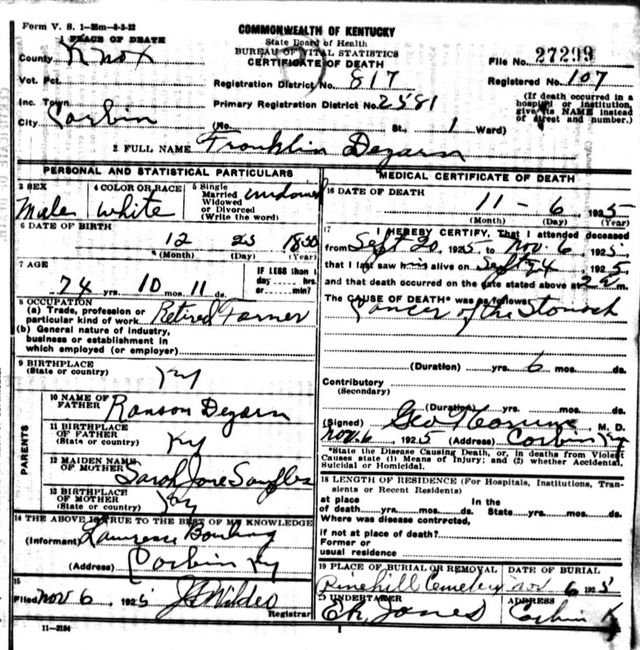 Form V. S. 1-35m-8-2-22
COMMONWEALTH OF KENTUCKY
State Board of Health
BUREAU OF VITAL STATISTICS
CERTIFICATE OF DEATH
1 PLACE OF DEATH
County Knox
File No. 27299
Vot. Pct.
Registration District No. 817
Registered No. 107
Inc. Town
Primary Registration District No. 2581
(If death occurred in a hospital or institution, give its NAME instead of street and number.)
City Corbin
(No. St., 1 Ward)
2 FULL NAME Franklin Dezarn
PERSONAL AND STATISTICAL PARTICULARS
3 SEX Male
4 COLOR OR RACE White
5 Single Married Widowed or Divorced (Write the word) widowed
6 DATE OF BIRTH
12 23 1850
(Month) (Day) (Year)
7 AGE
74 yrs. 10 mos. 11 ds.
IF LESS than 1 day hrs. or min.
8 OCCUPATION
(a) Trade, profession or particular kind of work Retired Farmer
(b) General nature of industry, business or establishment in which employed (or employer)
9 BIRTHPLACE
(State or country) Ky
PARENTS
10 NAME OF FATHER Ranson Dezarn
11 BIRTHPLACE OF FATHER
(State or country) Ky
12 MAIDEN NAME OF MOTHER Sarah Jane
13 BIRTHPLACE OF MOTHER
(State or country) Ky
14 THE ABOVE IS TRUE TO THE BEST OF MY KNOWLEDGE
(Informant) Lawrence Bowling
(Address) Corbin Ky
15
Filed Nov 6, 1925
Registrar
11-3184
MEDICAL CERTIFICATE OF DEATH
16 DATE OF DEATH
11 - 6 1925
(Month) (Day) (Year)
17 I HEREBY CERTIFY, That I attended deceased
from Sept 20, 1925, to Nov. 6, 1925,
that I last saw him alive on Sept 24, 1925,
and that death occurred on the date stated above at m.
The CAUSE OF DEATH* was as follows:
Cancer of the Stomach
(Duration) yrs. 6 mos. ds.
Contributory
(Secondary)
(Duration) yrs. mos. ds.
(Signed) Geo M. D.
Nov. 6 1925 (Address) Corbin Ky
*State the Disease Causing Death, or, in deaths from Violent
Causes state (1) Means of Injury; and (2) whether Accidental,
Suicidal or Homicidal.
18 LENGTH OF RESIDENCE (For Hospitals, Institutions, Transients or Recent Residents)
at place of death yrs. mos. ds. In the State yrs. mos. ds.
Where was disease contrrcted,
if not at place of death?
Former or
usual residence
19 PLACE OF BURIAL OR REMOVAL
DATE OF BURIAL
Pinehill Cemetery Nov 6 1925
20 UNDERTAKER
ADDRESS
Jones Corbin K